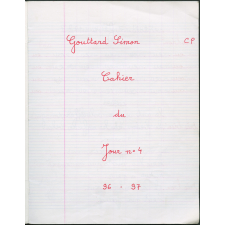 Gouttard Simon CP
Cahier
du
Jour n° 4
96 - 97